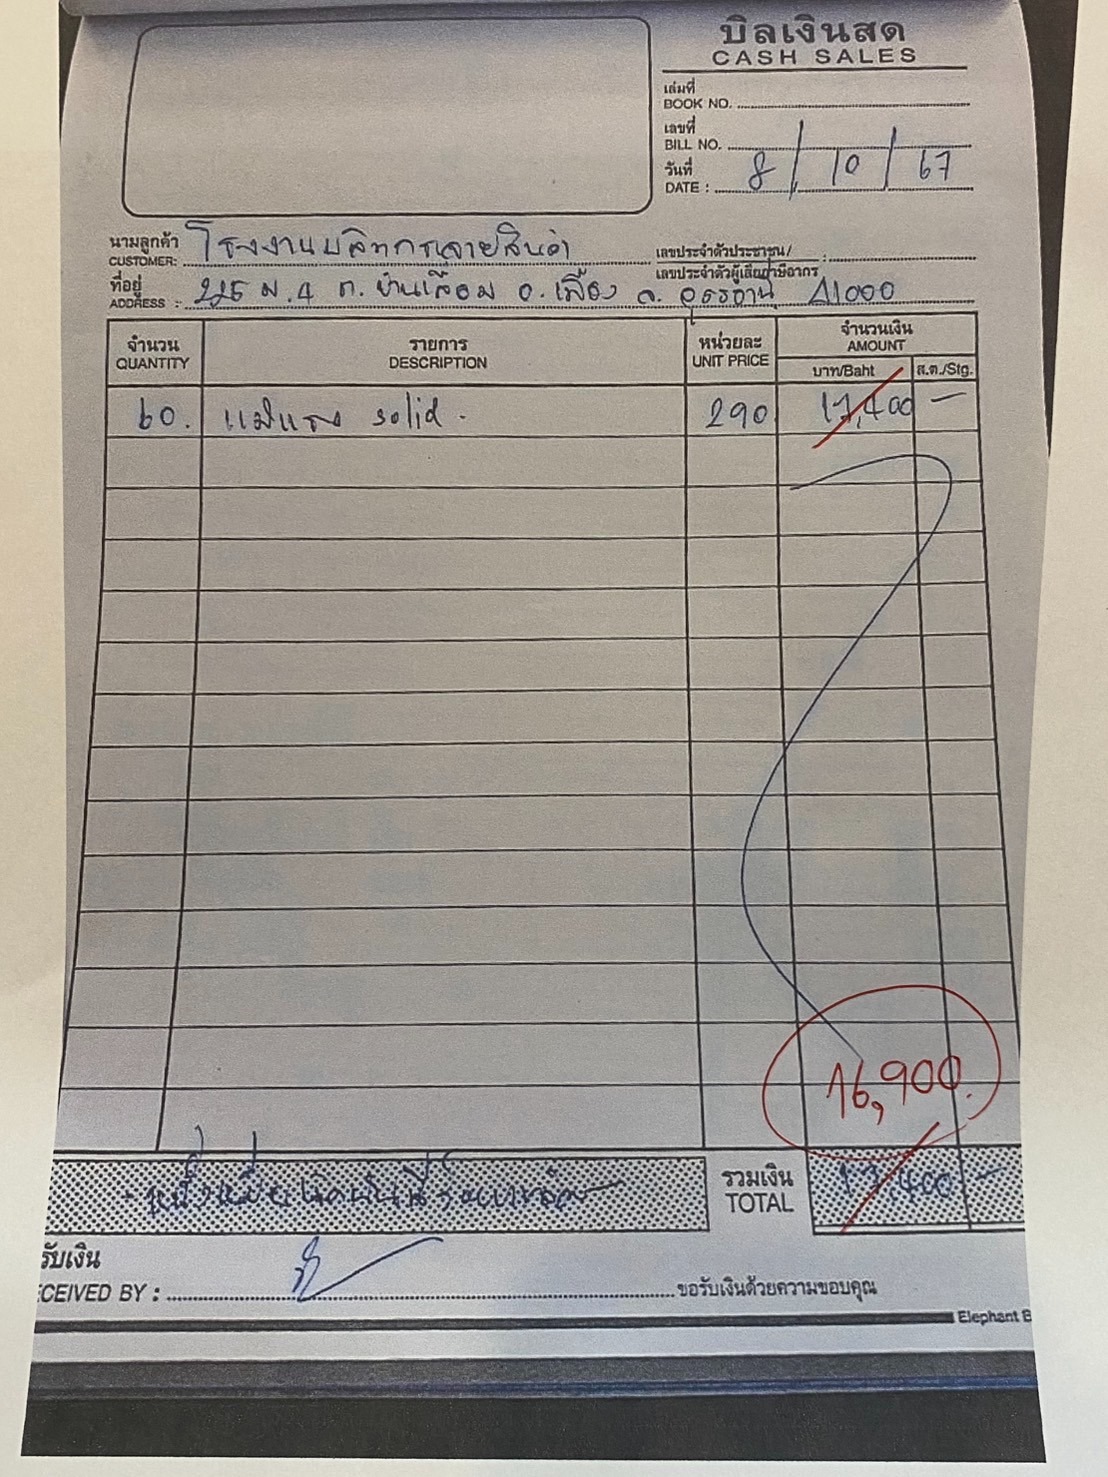 บิลเงินสด
CASH SALES
เล่มที่
BOOK NO.
เลขที่
BILL NO.
วันที่
DATE : 8/10/67
นามลูกค้า โรงงานผลิตกระจายสินค้า
CUSTOMER:
เลขประจำตัวประชาชน/
เลขประจำตัวผู้เสียภาษีอากร
ที่อยู่ 225 ม.4 ต.บ้านเลื่อม อ.เมือง จ.อุดรธานี 41000
ADDRESS :
จำนวน รายการ หน่วยละ จำนวนเงิน
QUANTITY DESCRIPTION UNIT PRICE AMOUNT
บาท/Baht ส.ต./Stg.
60. แม่แรง solid - 290 17,400 -
16,900.
รวมเงิน 17,400 -
TOTAL
รับเงิน
CEIVED BY : ขอรับเงินด้วยความขอบคุณ
Elephant B